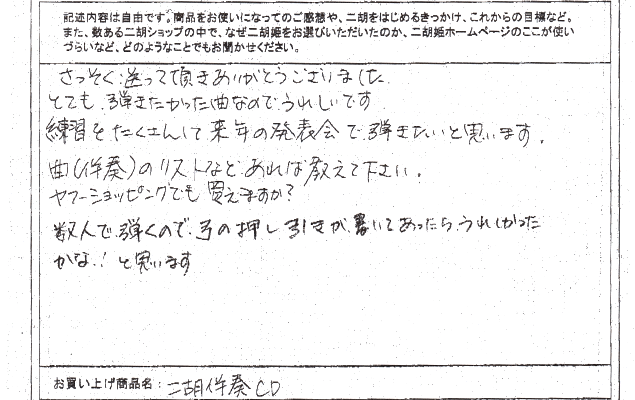 記述内容は自由です。商品をお使いになってのご感想や、二胡をはじめるきっかけ、これからの目標など。
また、数ある二胡ショップの中で、なぜ二胡姫をお選びいただいたのか、二胡姫ホームページのここが使い
づらいなど、どのようなことでもお聞かせください。
さっそく送って頂きありがとうございました。
とても弾きたかった曲なのでうれしいです
練習をたくさんして来年の発表会で弾きたいと思います。
曲(伴奏)のリストなどあれば教えて下さい。
ヤフーショッピングでも買えますか?
数人で弾くので、弓の押し引きが書いてあったらうれしかった
かな。! と思います
お買い上げ商品名:二胡伴奏CD